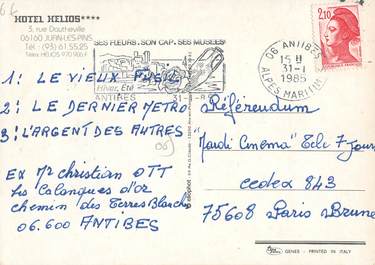 6 €
HOTEL HELIOS****
3, rue Dautheville
06160 JUAN-LES-PINS
Tél.: (93) 61.55.25
Télex HELIOS 970 906 F
SES FLEURS. SON CAP. SES MUSÉES
Hiver, Été
ANTIBES 31-1-85
06 ANTIBES
15 H
31-1
1985
ALPES MARITIMES
2,10
1: LE VIEUX FUSIL
2: LE DERNIER METRO
3: L'ARGENT DES AUTRES
06
EX Mr Christian OTT
Les Calongues d'or
chemin des Terres Blanches
06.600 ANTIBES
Référendum
"Mardi Cinéma" Télé 7 Jours
cedex 843
75608 Paris Brune
GENES - PRINTED IN ITALY